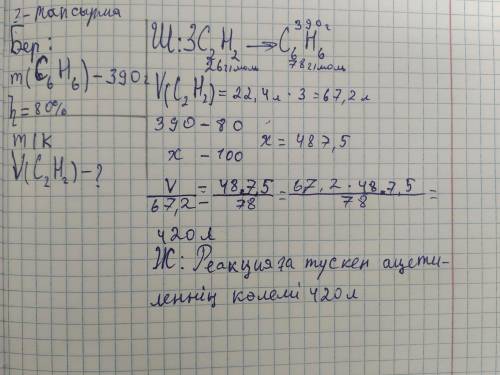 2-тапсырма
Бер:
m(C₆H₆) - 390 г
η = 80%
т/к
V(C₂H₂) - ?
Ш: 3C₂H₂ → C₆H₆
390г
26г/моль 78г/моль
V(C₂H₂) = 22,4л · 3 = 67,2л
390 - 80
x = 487,5
x - 100
V/67,2 = 48.7,5/78 = 67,2 · 48.7,5/78 =
420 л
Ж: Реакцияға түскен ацети-
леннің көлемі 420 л